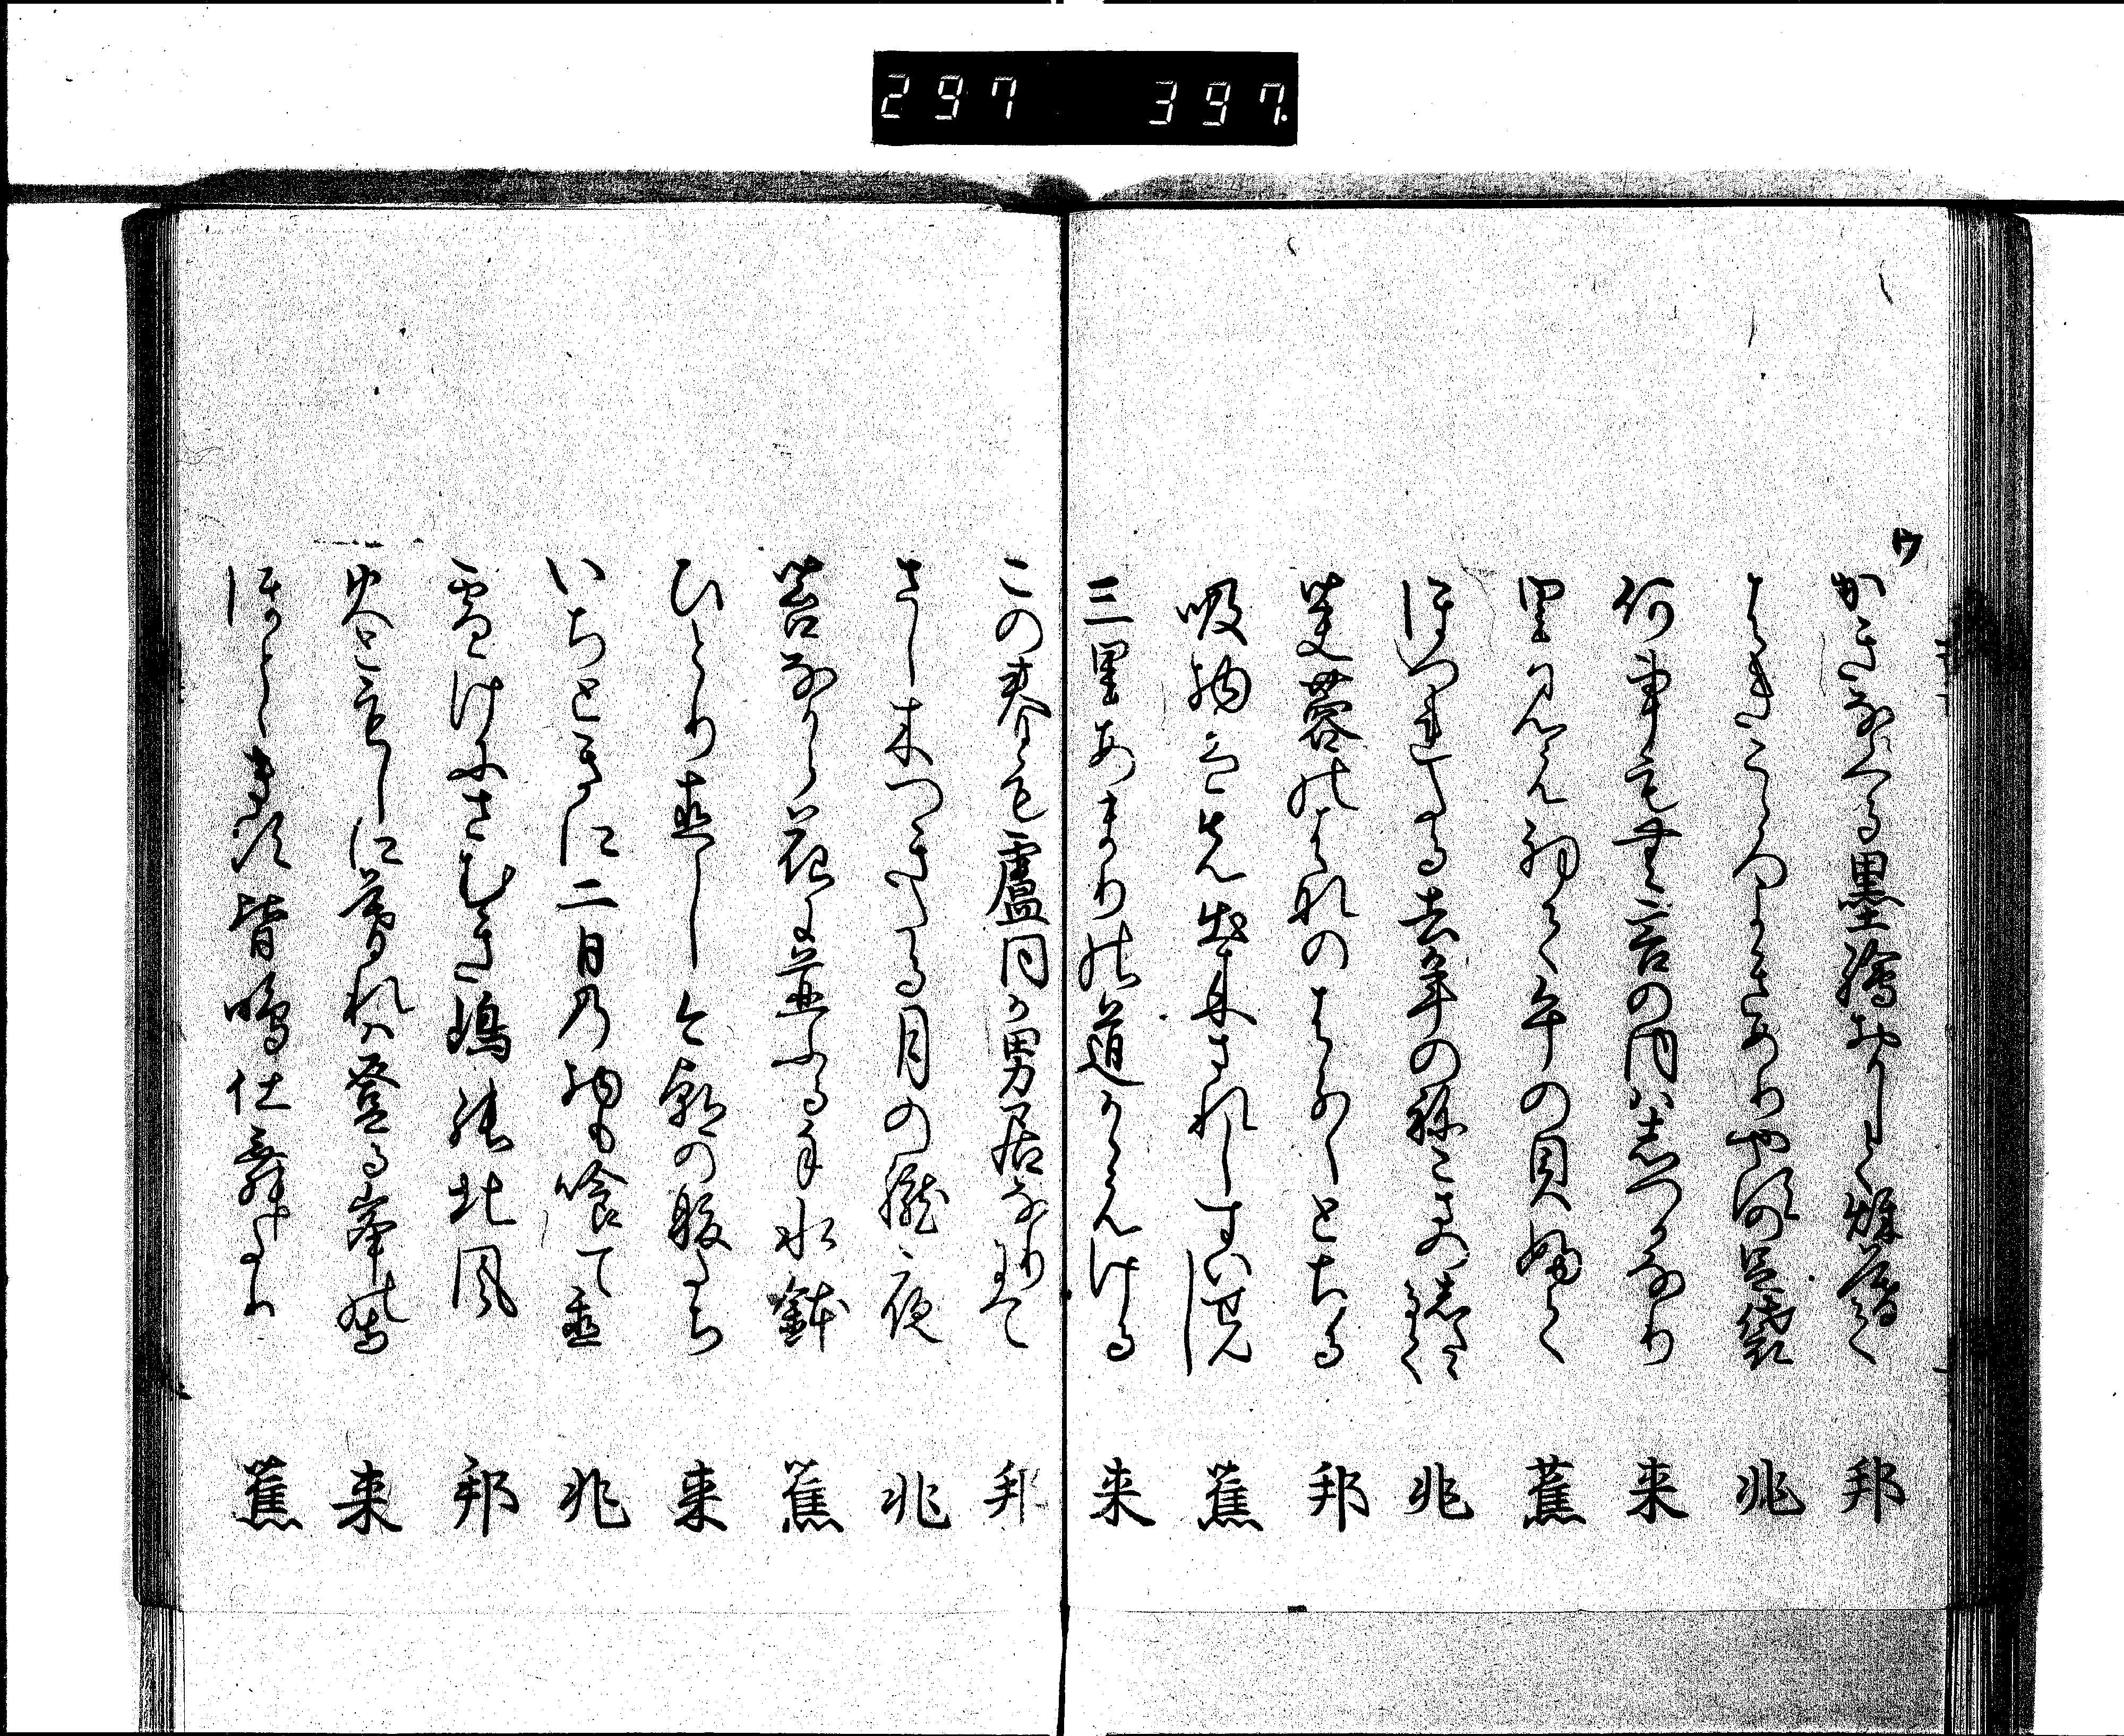 297 397.
ウ
かきなくる墨繪おかしく秋暮て 邦
はきこゝろよきめりやすの足袋 兆
何事も無言の内はしつかなり 来
里見え初て午の貝ふく 蕉
ほつれたる去年のねこさのしたゝるく 兆
芙蓉のはなのはら〳〵とちる 邦
吸物は先出来されしすいせんし 蕉
三里あまりの道かゝえける 来
この春も盧同か男居なりにて 邦
さし木つきたる月の朧夜 兆
苔なから花に並ふる手水鉢 蕉
ひとり直し今朝の腹たち 来
いちときに二日の物も喰て置 兆
雪けにさむき嶋の北風 邦
火ともしに暮れは登る峯の寺 来
ほとゝきす皆鳴仕舞たり 蕉